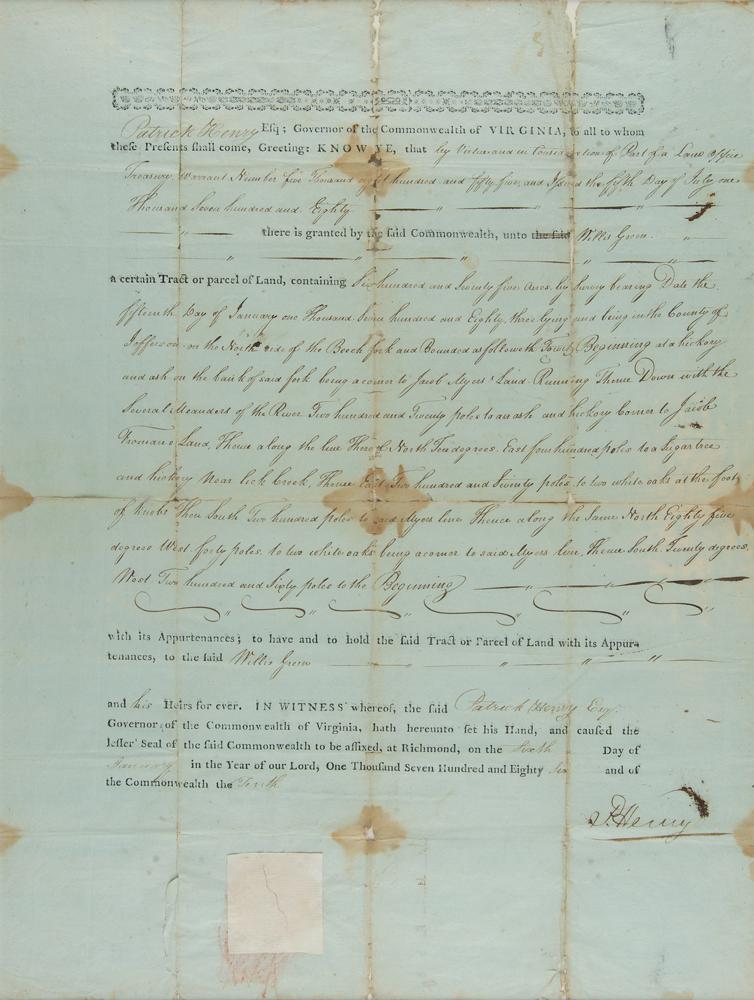 Patrick Henry Esq; Governor of the Commonwealth of VIRGINIA, to all to whom
these Presents shall come, Greeting: KNOW YE, that by Virtue and in Consideration of Part of a Land Office
Treasury Warrant Number five Thousand eight hundred and fifty five and Issued the fifth Day of July one
Thousand Seven hundred and Eighty
there is granted by the said Commonwealth, unto the said Willis Green
a certain Tract or parcel of Land, containing Six hundred and Seventy five Acres by Survey bearing Date the
fifteenth Day of January one Thousand Seven hundred and Eighty three lying and being in the County of
Jefferson on the North side of the Beech fork and Bounded as followeth Towit, Beginning at a hickory
and ash on the bank of said fork being a corner to Jacob Myers' Land Running Thence Down with the
Several Meanders of the River Two hundred and Twenty poles to an ash and hickory Corner to Jacob
Fromans Land, Thence along the line Thereof North Ten degrees East four hundred poles to a Sugartree
and hickory Near lick Creek, Thence East Two hundred and Twenty poles to two white oaks at the foot
of knobs Then South Two hundred poles to said Myers line Thence along the Same North Eighty five
degrees West forty poles to two white oaks being a corner to said Myers line, Thence South Twenty degrees
West Two hundred and Sixty poles to the Beginning
with its Appurtenances; to have and to hold the said Tract or Parcel of Land with its Appur-
tenances, to the said Willis Green
and his Heirs for ever. IN WITNESS whereof, the said Patrick Henry Esq.
Governor of the Commonwealth of Virginia, hath hereunto set his Hand, and caused the
lesser Seal of the said Commonwealth to be affixed, at Richmond, on the Sixth Day of
January in the Year of our Lord, One Thousand Seven Hundred and Eighty Six and of
the Commonwealth the Tenth
P. Henry